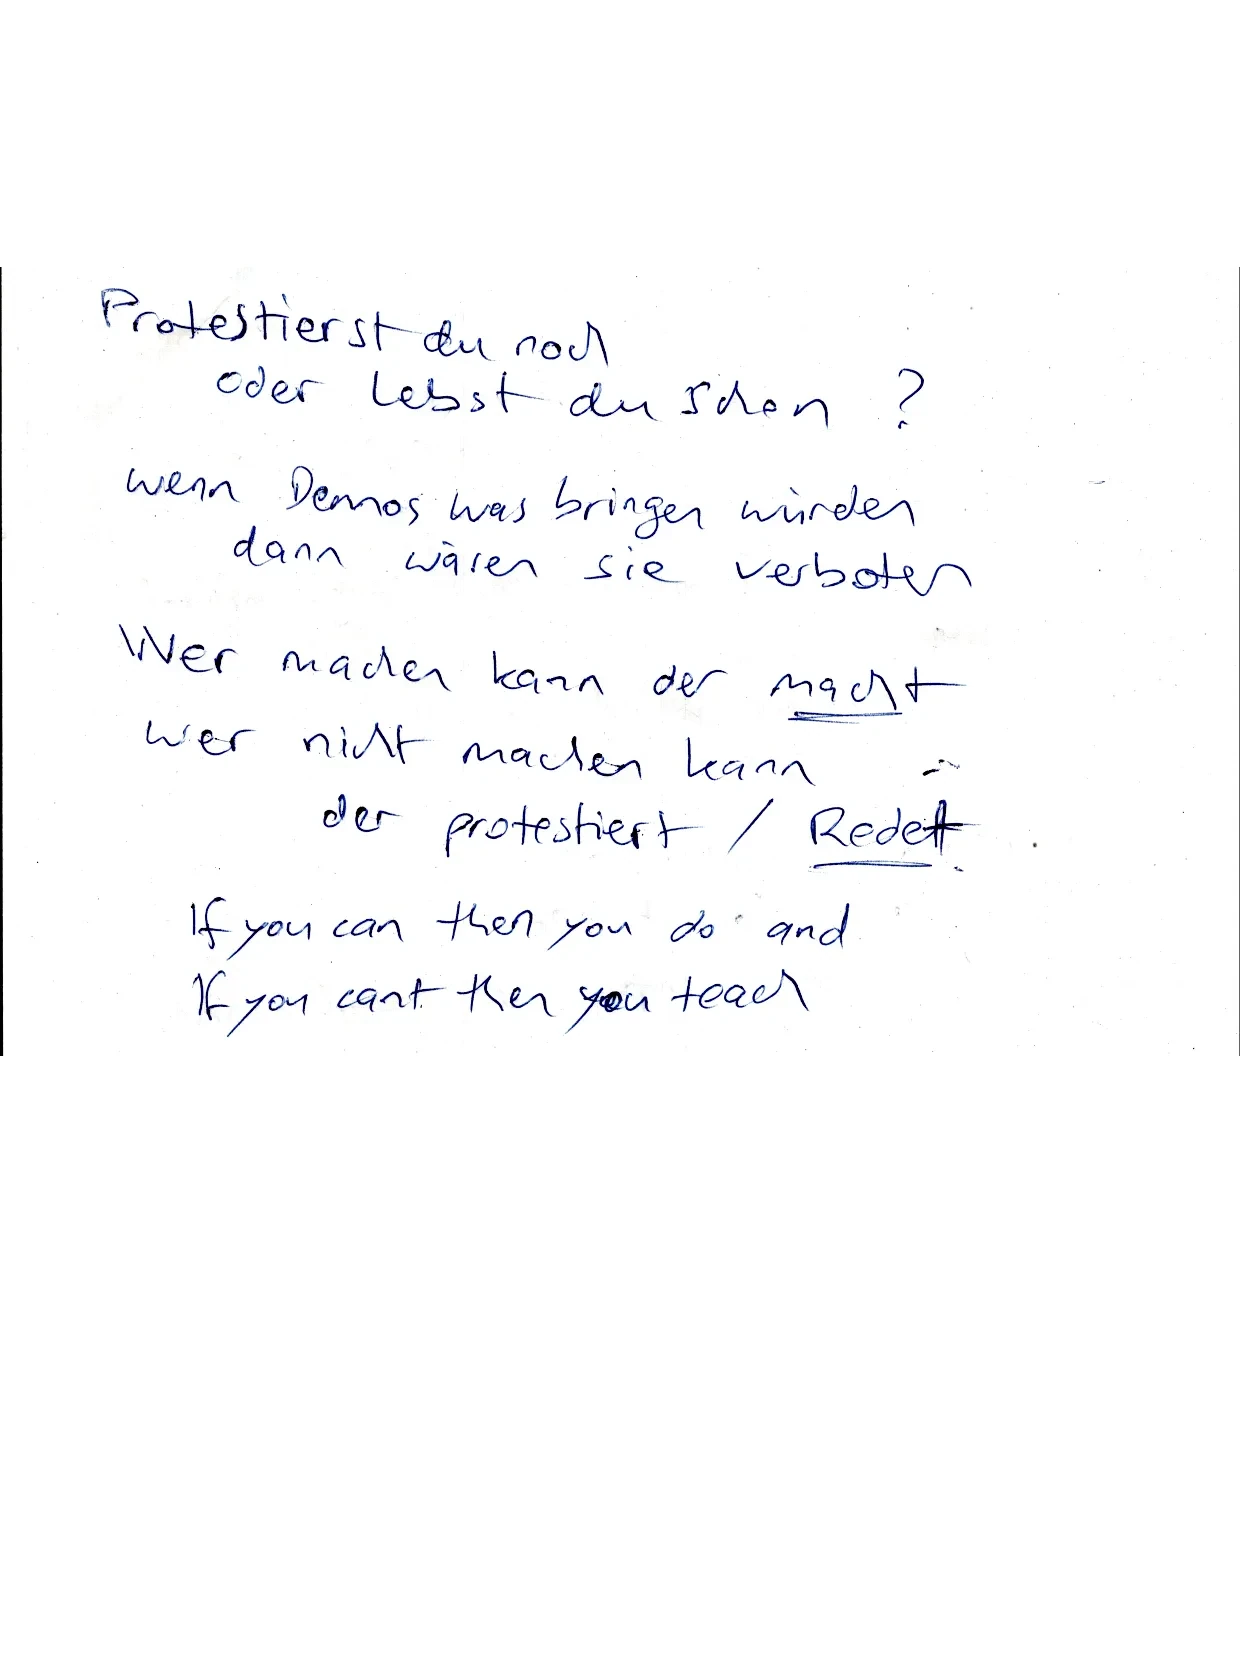 Protestierst du noch
oder lebst du schon ?
wenn Demos was bringen würden
dann wären sie verboten
Wer machen kann der macht
wer nicht machen kann
der protestiert / Redet
If you can then you do and
If you cant then you teach